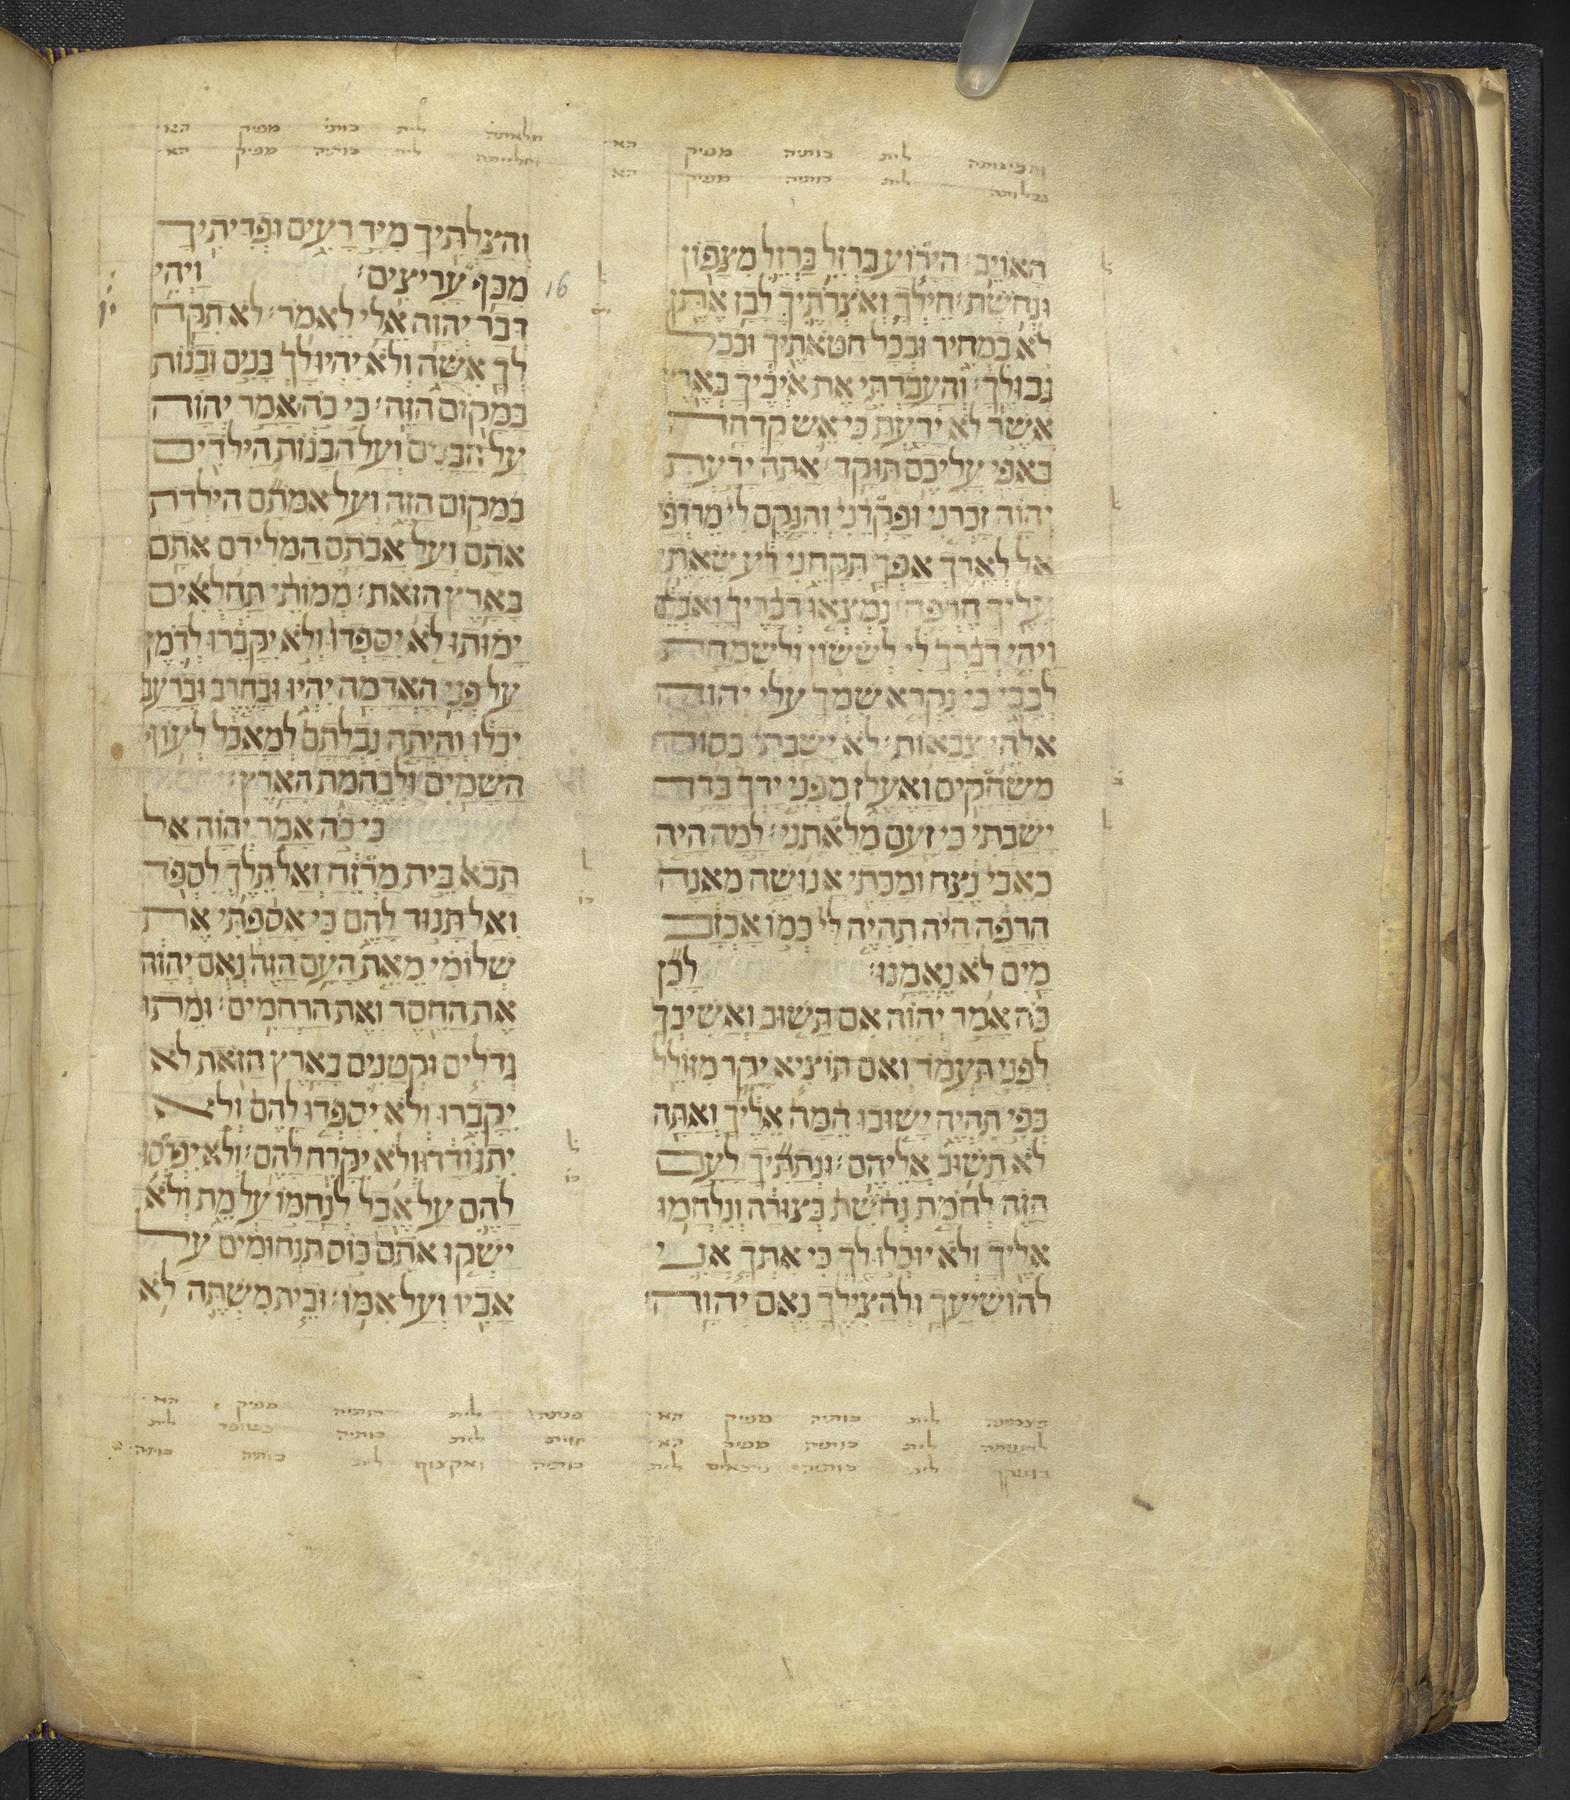 האויב׃ הירוע ברזל ברזל מצפון
ונחשת׃ חילך ואצרתיך לבז אתן
לא במחיר ובכל חטאתיך ובכל
גבוליך׃ והעברתי את איביך בארץ
אשר לא ידעת כי אש קדחה
באפי עליכם תוקד׃ אתה ידעת
יהוה זכרני ופקדני והנקם לי מרדפי
אל לארך אפך תקחני דע שאתי
עליך חרפה׃ נמצאו דבריך ואכלם
ויהי דברך לי לששון ולשמחת
לבבי כי נקרא שמך עלי יהוה
אלהי צבאות׃ לא ישבתי בסוד
משחקים ואעלז מפני ידך בדד
ישבתי כי זעם מלאתני׃ למה היה
כאבי נצח ומכתי אנושה מאנה
הרפה היה תהיה לי כמו אכזב
מים לא נאמנו׃ לכן
כה אמר יהוה אם תשוב ואשיבך
לפני תעמד ואם תוציא יקר מזולל
כפי תהיה ישובו המה אליך ואתה
לא תשוב אליהם׃ ונתתיך לעם
הזה לחמת נחשת בצורה ונלחמו
אליך ולא יוכלו לך כי אתך אני
להושיעך ולהצילך נאם יהוה׃
והצלתיך מיד רעים ופדיתיך
מכף עריצים׃ ויהי
16
דבר יהוה אלי לאמר׃ לא תקח
לך אשה ולא יהיו לך בנים ובנות
במקום הזה׃ כי כה אמר יהוה
על הבנים ועל הבנות הילדים
במקום הזה ועל אמתם הילדת
אתם ועל אבתם המלידם אתם
בארץ הזאת׃ ממותי תחלאים
ימותו לא יספדו ולא יקברו לדמן
על פני האדמה יהיו ובחרב וברעב
יכלו והיתה נבלתם למאכל לעוף
השמים ולבהמת הארץ׃
כי כה אמר יהוה אל
תבא בית מרזח ואל תלך לספד
ואל תנוד להם כי אספתי את
שלומי מאת העם הזה נאם יהוה
את החסד ואת הרחמים׃ ומתו
גדלים וקטנים בארץ הזאת לא
יקברו ולא יספדו להם ולא
יתגודד ולא יקרח להם׃ ולא יפרסו
להם על אבל לנחמו על מת ולא
ישקו אתם כוס תנחומים על
אביו ועל אמו׃ ובית משתה לא